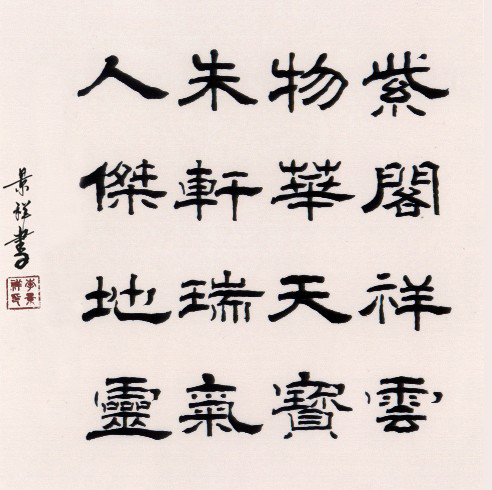 紫閣祥雲
物華天寶
朱軒瑞氣
人傑地靈
景祥書